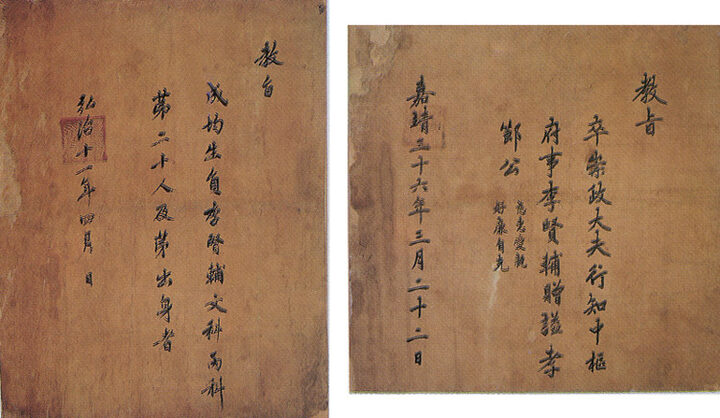 教旨
成均生員李賢輔文科丙科
苐二十人及苐出身者
弘治十一年四月 日
教旨
卒崇政大夫行知中樞
府事李賢輔贈謚孝
節公
慈惠愛親
好廉自克
嘉靖三十六年三月二十二日